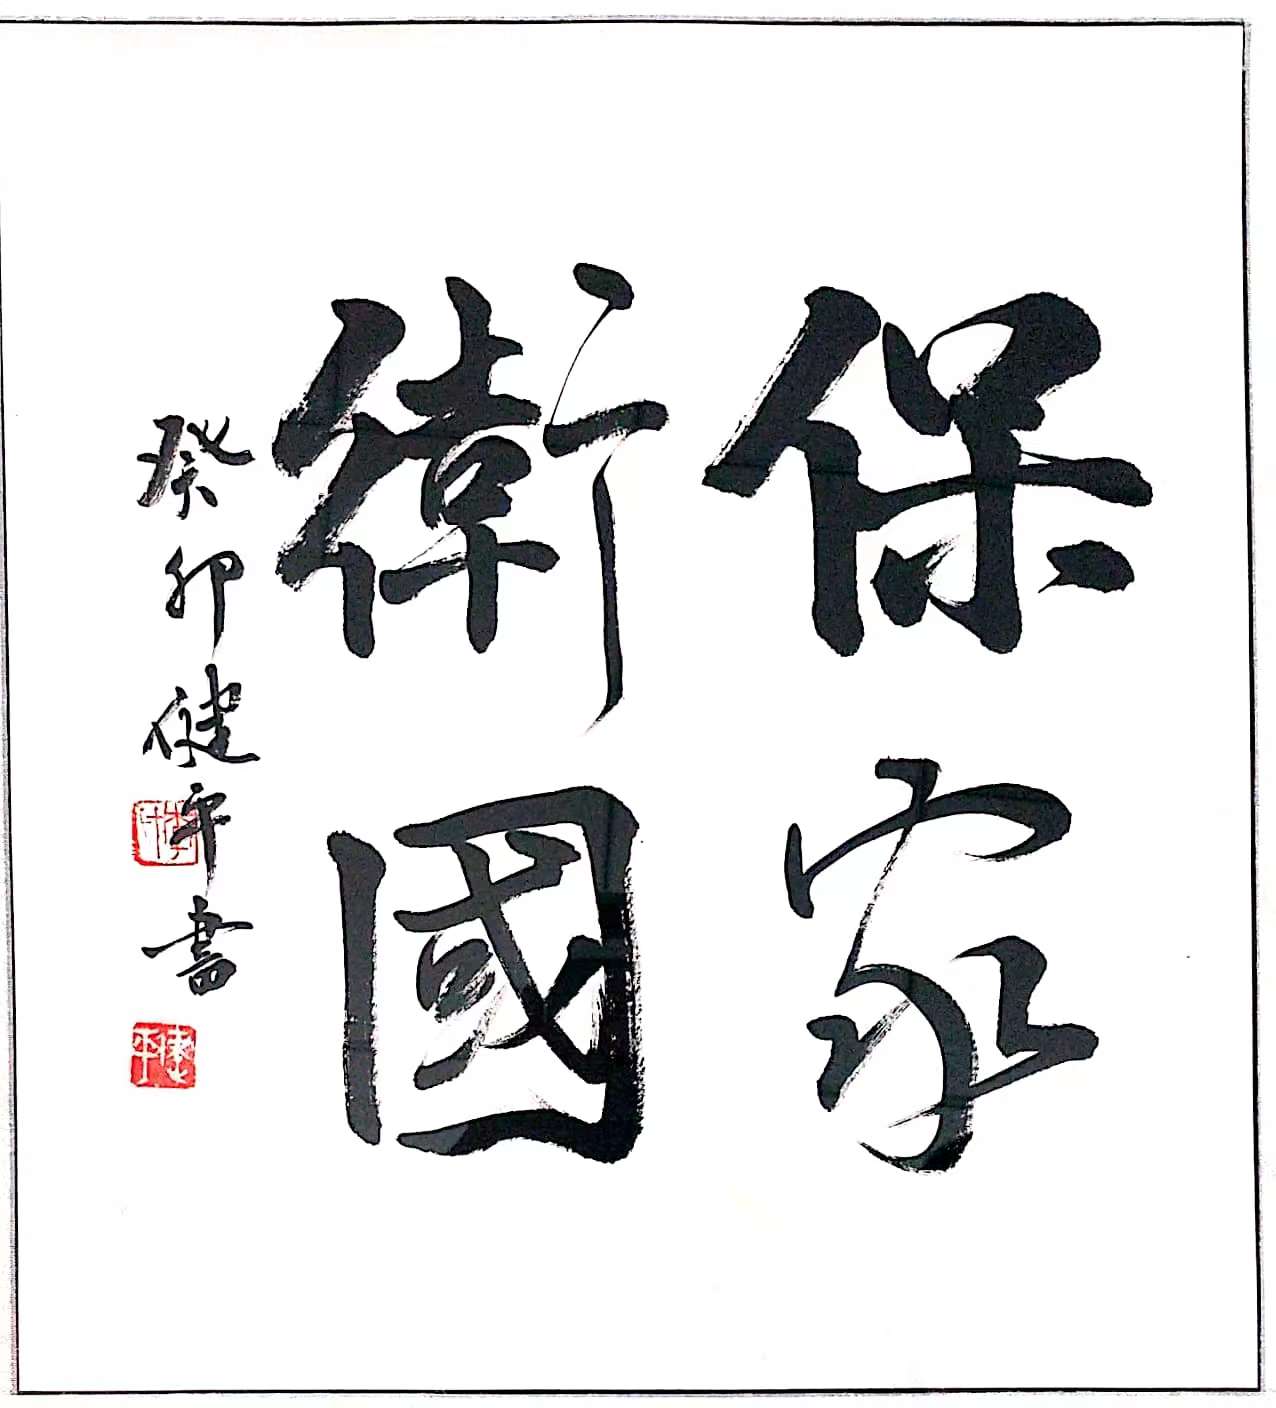 保家
衛國
癸卯健平書
健平